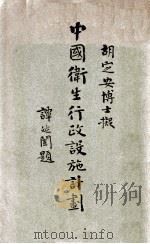 胡定安博士擬
中國衛生行政設施計畫
譚延闓題